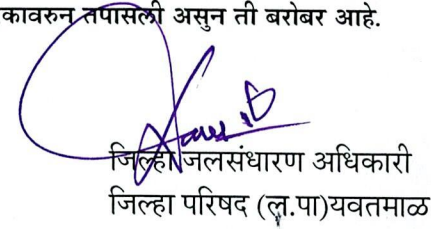 कावरुन तपासली असुन ती बरोबर आहे.
जिल्हा जलसंधारण अधिकारी
जिल्हा परिषद (ल.पा)यवतमाळ